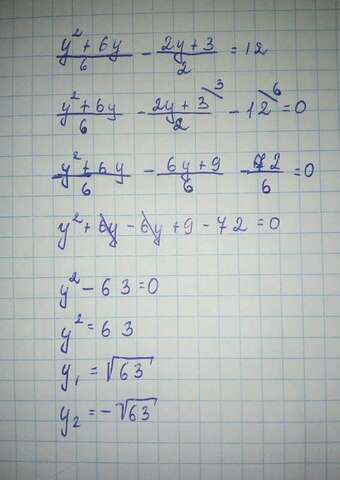 (y² + 6y)/6 - (2y + 3)/2 = 12
(y² + 6y)/6 - (2y + 3)/2 /3 - 12 /6 = 0
(y² + 6y)/6 - (6y + 9)/6 - 72/6 = 0
y² + 6y - 6y + 9 - 72 = 0
y² - 63 = 0
y² = 63
y₁ = √63
y₂ = -√63